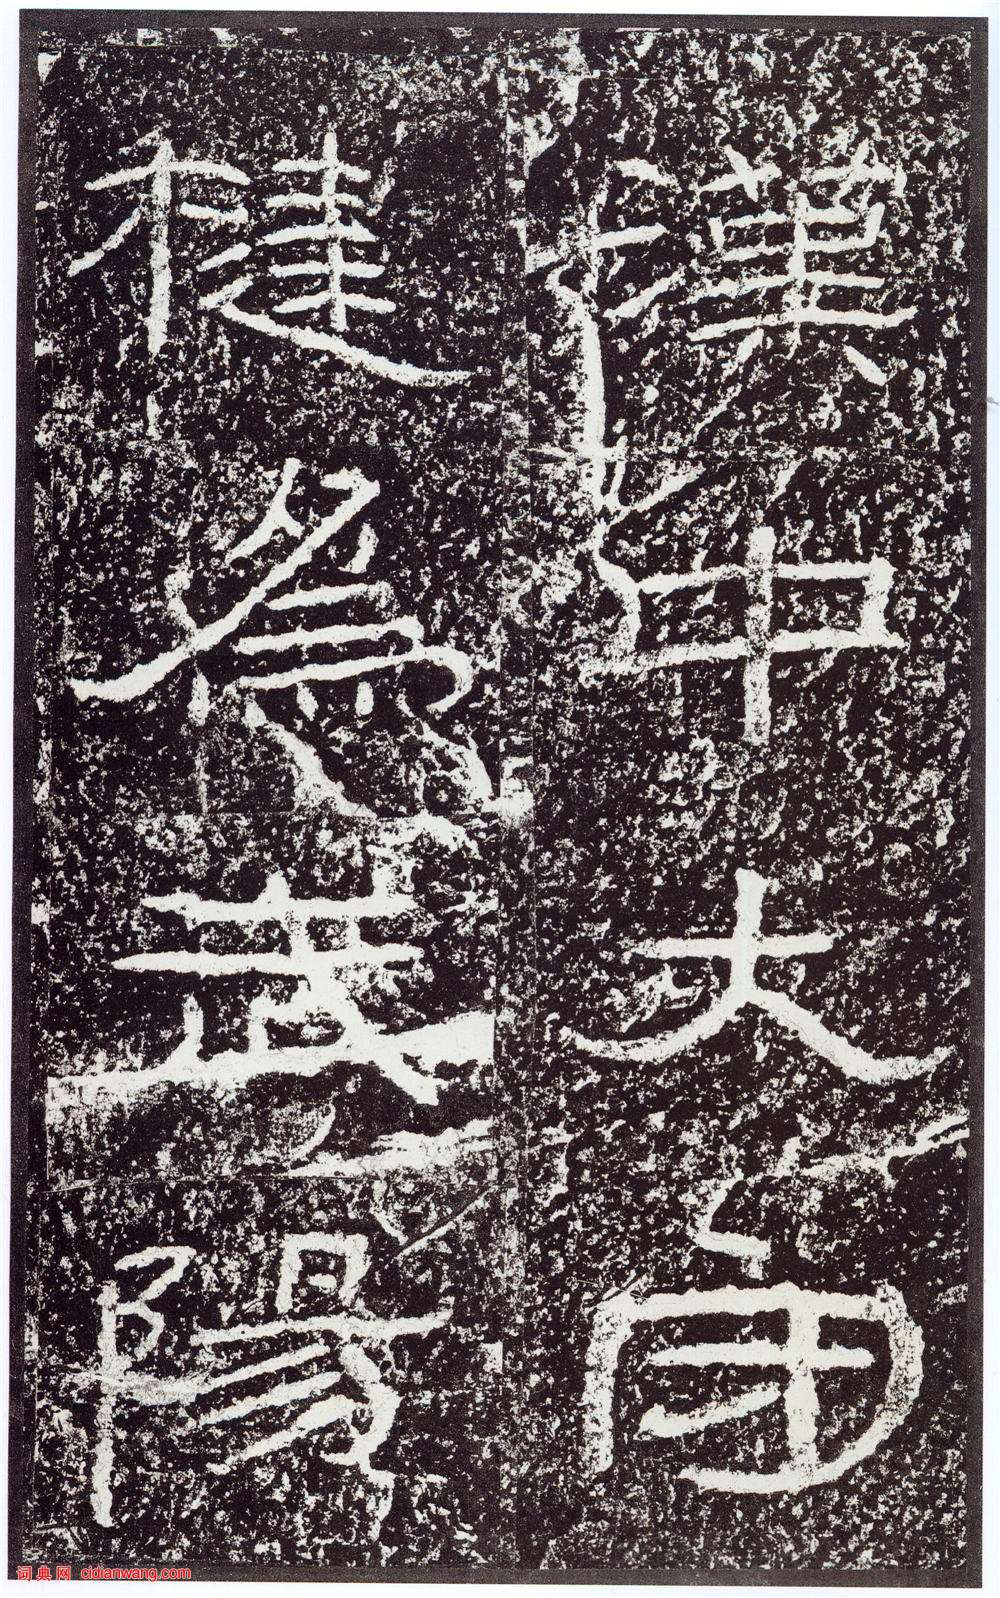 漢中大守
楗為武陽
词典网 cidianwang.com